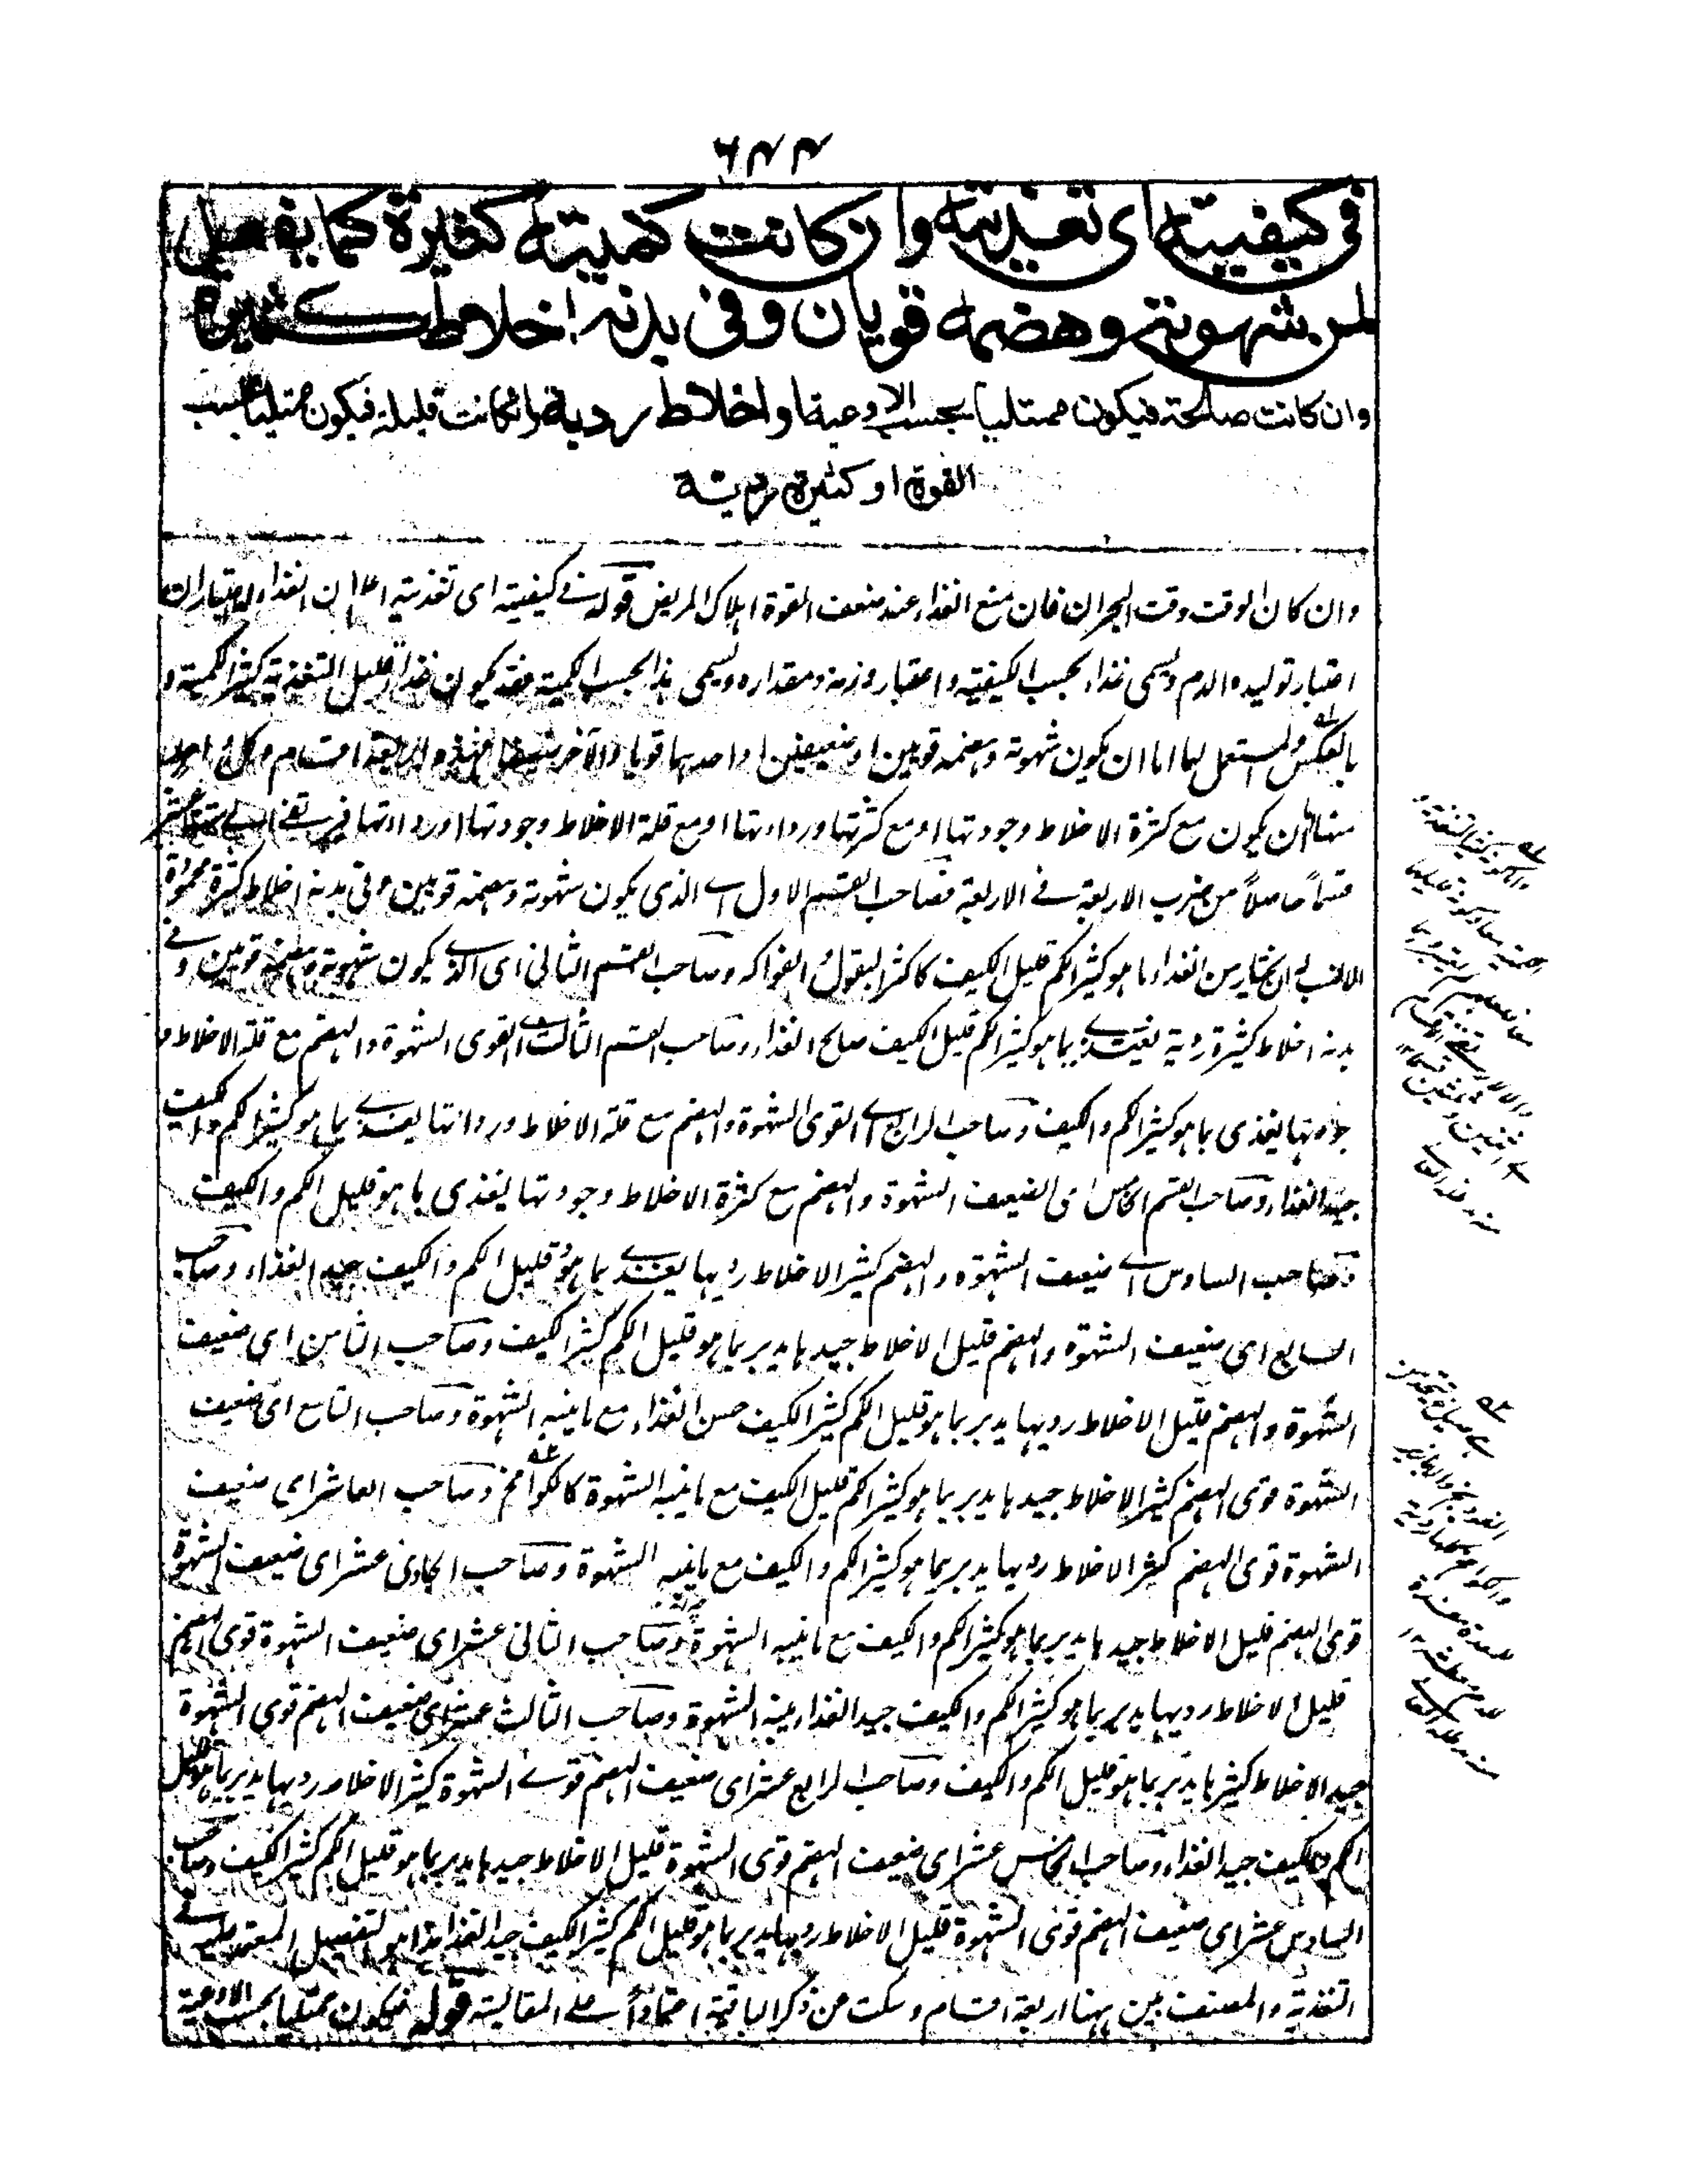 ٦٤٤
في كيفيته اى تغذيته وان كانت كميته كثيرة كما يفعل
لمن شهوته وهضمه قويان وفى بدنه اخلاط كثيرة
وان كانت صالحة فيكون ممتليا بحسب الاوعية او اخلاط ردية وانكانت قليلة فيكون ممتليا بحسب
القوة او كثيرة ردية
وان كان الوقت وقت البحران فان منع الغذاء عند ضعف القوة اهلاك المريض قوله فے كيفيته اى تغذيته اعلم ان الغذاء له اعتباران
اعتبار توليده الدم ويسمى غذاء بحسب الكيفية واعتبار وزنه ومقداره ويسمى هذا بحسب الكمية فقد يكون غذاء قليل التغذية كثير الكمية و
بالعكس والمستعمل لها اما ان يكون شهوته وهضمه قويين او ضعيفين او احدهما قويا والآخر ضعيفا فهذه اربعة اقسام وكل واحد
منها اما ان يكون مع كثرة الاخلاط وجودتها او مع كثرتها ورداءتها او مع قلة الاخلاط وجودتها او رداءتها فيرتقے الے ستة عشر
قسما حاصلا من ضرب الاربعة فے الاربعة فصاحب القسم الاول اے الذى يكون شهوته وهضمه قويين وفى بدنه اخلاط كثيرة محمودة
الانسب له ان يختار من الغذاء ما هو كثير الكم قليل الكيف كاكثر البقول والفواكه وصاحب القسم الثانى اى الذے يكون شهوته وهضمه قويين وفے
بدنه اخلاط كثيرة ردية يغتذے بما هو كثير الكم قليل الكيف صالح الغذاء وصاحب القسم الثالث اے القوى الشهوة والهضم مع قلة الاخلاط و
جودتها يغذى بما هو كثير الكم والكيف وصاحب الرابع اے القوى الشهوة والهضم مع قلة الاخلاط ورداءتها يغتذے بما هو كثير الكم والكيف
جيد الغذاء وصاحب القسم الخامس اى الضعيف الشهوة والهضم مع كثرة الاخلاط وجودتها يغذى بما هو قليل الكم والكيف
وصاحب السادس اے ضعيف الشهوة والهضم كثير الاخلاط رديها يغتذے بما هو قليل الكم والكيف جيد الغذاء وصاحب
السابع اى ضعيف الشهوة والهضم قليل الاخلاط جيدها يدبر بما هو قليل الكم كثير الكيف وصاحب الثامن اى ضعيف
الشهوة والهضم قليل الاخلاط رديها يدبر بما هو قليل الكم كثير الكيف حسن الغذاء مع ما ينبه الشهوة وصاحب التاسع اى ضعيف
الشهوة قوى الهضم كثير الاخلاط جيدها يدبر بما هو كثير الكم قليل الكيف مع ما ينبه الشهوة كالكوامخ وصاحب العاشر اى ضعيف
الشهوة قوى الهضم كثير الاخلاط رديها يدبر بما هو كثير الكم والكيف مع ما ينبه الشهوة وصاحب الحادى عشر اى ضعيف الشهوة
قوى الهضم قليل الاخلاط جيدها يدبر بما هو كثير الكم والكيف مع ما ينبه الشهوة وصاحب الثانى عشر اى ضعيف الشهوة قوى الهضم
قليل الاخلاط رديها يدبر بما هو كثير الكم والكيف جيد الغذاء ينبه الشهوة وصاحب الثالث عشر اى ضعيف الهضم قوى الشهوة
جيد الاخلاط كثيرها يدبر بما هو قليل الكم والكيف وصاحب الرابع عشر اى ضعيف الهضم قوے الشهوة كثير الاخلاط رديها يدبر بما هو قليل
الكم والكيف جيد الغذاء وصاحب الخامس عشر اى ضعيف الهضم قوى الشهوة قليل الاخلاط جيدها يدبر بما هو قليل الكم كثير الكيف وصاحب
السادس عشر اى ضعيف الهضم قوى الشهوة قليل الاخلاط رديها يدبر بما هو قليل الكم كثير الكيف جيد الغذاء هذا هو التفصيل المعتمد عليه فے
التغذية والمصنف بين ههنا اربعة اقسام وسكت من ذكر الباقية اعتمادا على المقايسة قوله فيكون ممتليا بحسب الاوعية